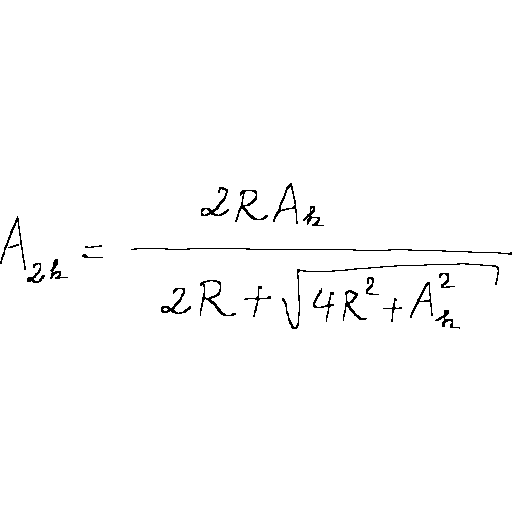 A_{2n} = \frac{2RA_n}{2R + \sqrt{4R^2 + A_n^2}}